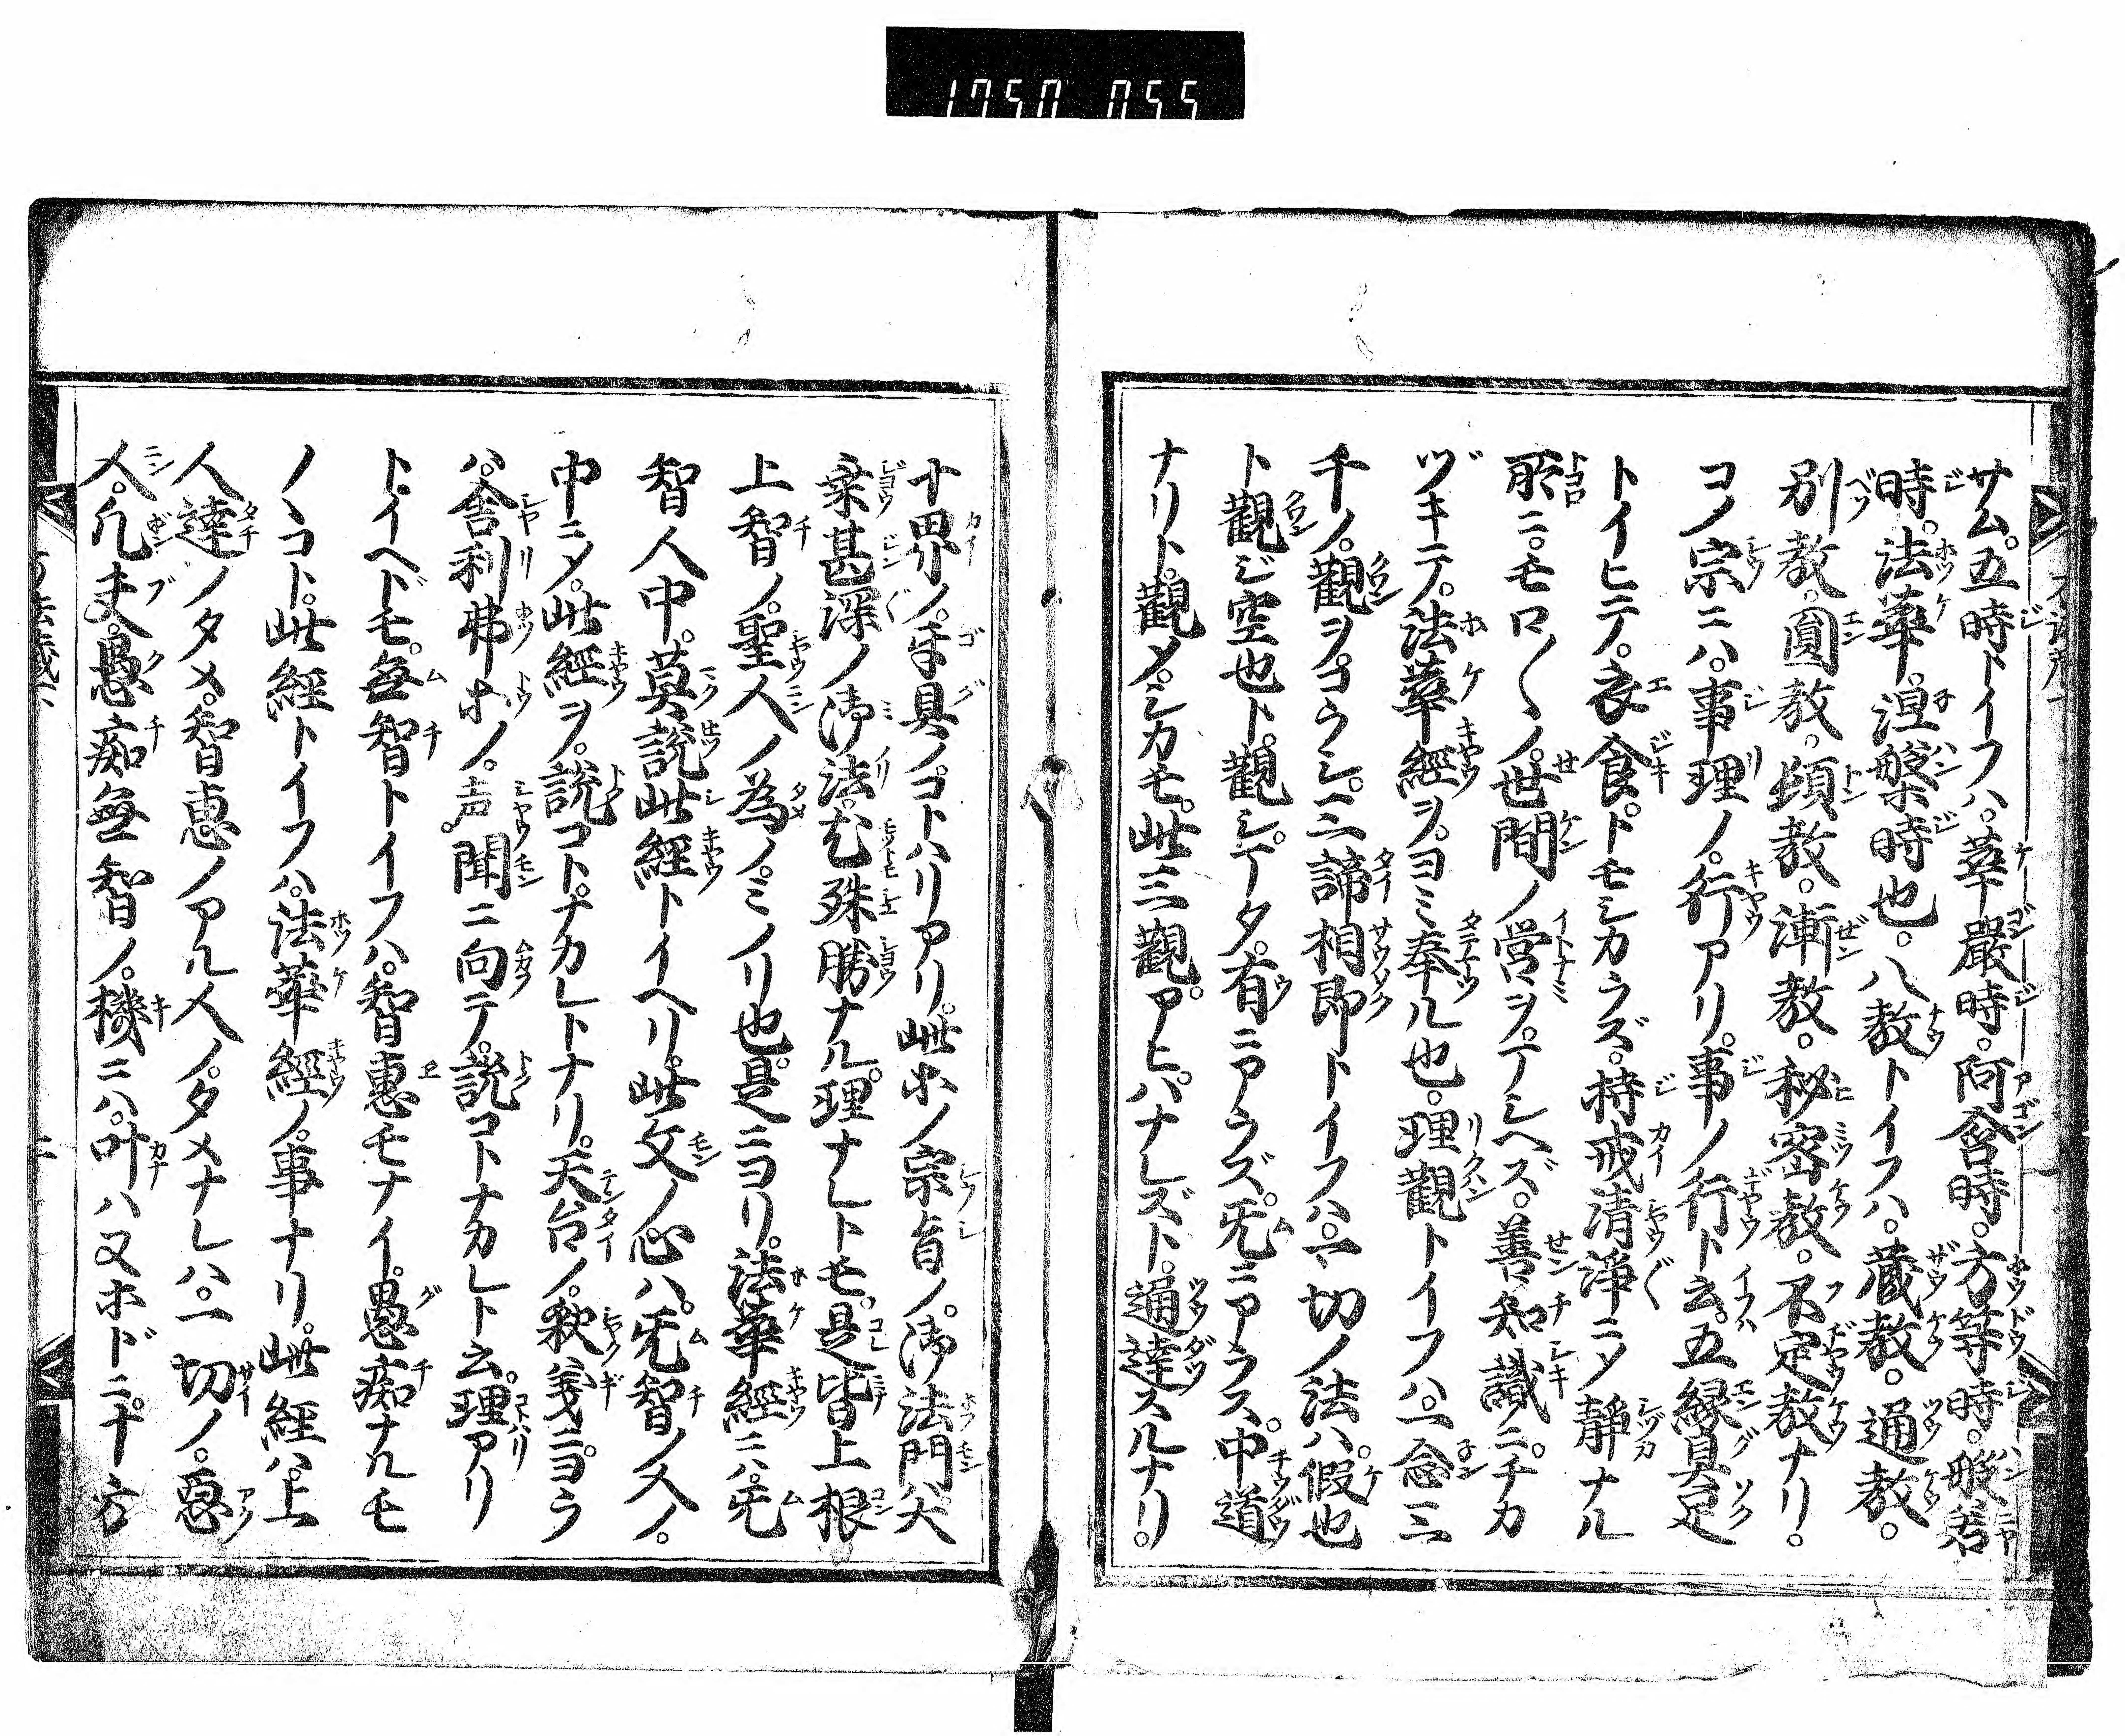 1750 055
サム。五時トイフハ。華嚴時。阿含時。方等時。般若
時。法華。涅槃時也。八教トイフハ。蔵教。通教。
別教。圓教。頓教。漸教。秘密教。不定教ナリ。
コノ宗ニハ。事理ノ。行アリ。事ノ行ト云。五縁具足
トイヒテ。衣食。トモシカラズ。持戒清淨ニ〆靜ナル
所ニ。モロ〱ノ。世間ノ営ヲ。マシヘズ。善知識ニ。チカ
ヅキテ。法華經ヲ。ヨミ奉ル也。理觀トイフハ。一念三
千ノ。觀ヲ。コラシ。三諦相即トイフハ。一切ノ法ハ。假也
ト觀ジ空也ト。觀シ。マタ。有ニアラズ。旡ニアラス。中道
ナリト。觀〆。シカモ。此三觀。アヒ。ハナレズト。通達スルナリ。
十界ノ。互具ノ。コトハリアリ。此ホノ宗旨ノ。御法門尤
深甚深ノ御法。尤殊勝ナル。理ナレトモ。是皆上根
上智ノ。聖人ノ為ノ。ミノリ也。是ニヨリ。法華經ニハ。旡
智人中。莫説此經トイヘリ。此文ノ心ハ。旡智ノ人ノ。
中ニ〆。此經ヲ。説コト。ナカレトナリ。天台ノ。釈義ニ。ヨラ
ハ。舎利弗ホノ。声聞ニ向テ。説コトナカレト云。理アリ
ト。イヘドモ。無智トイフハ。智惠モナイ。愚痴ナルモ
ノヽコト。此經トイフハ。法華經ノ。事ナリ。此經ハ。上
人達ノタメ。智惠ノアル人ノ。タメナレハ。一切ノ。惡
人。凡夫。愚痴無智ノ。機ニハ。叶ハヌホドニ。十方